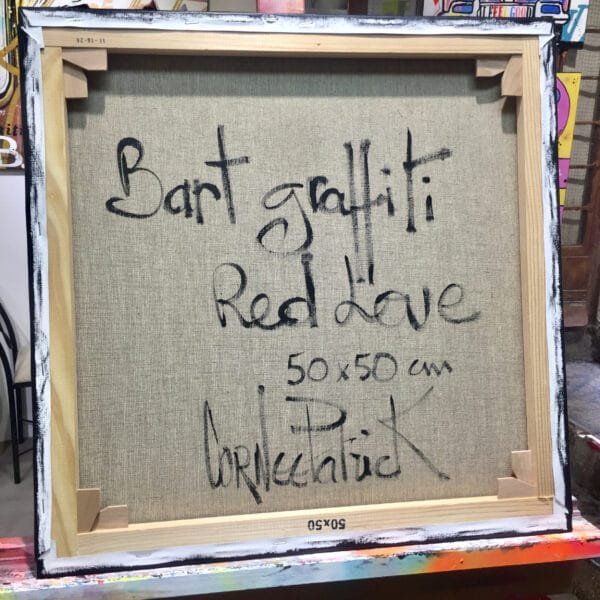 Bart graffiti
Red Love
50x50 cm
CORNEE Patrick
50x50